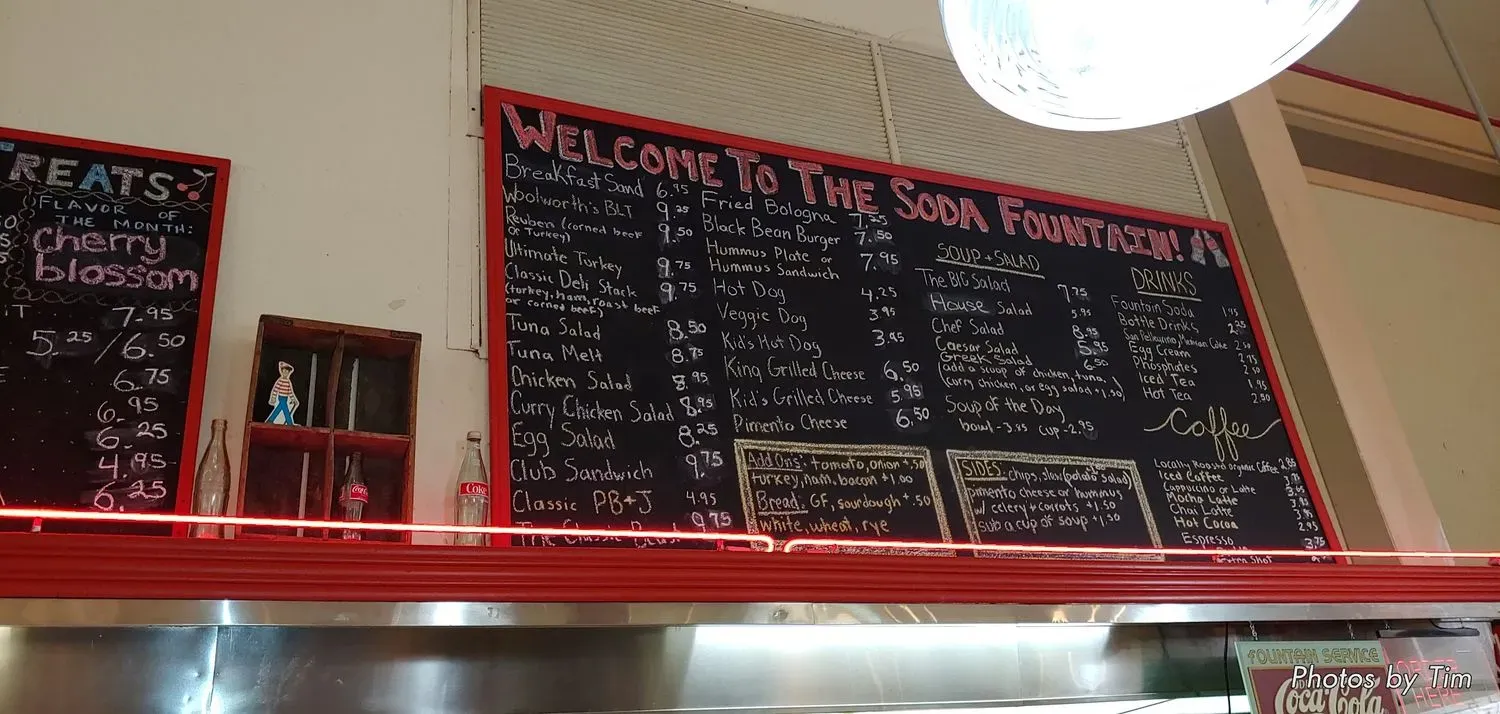 TREATS
FLAVOR OF
THE MONTH:
cherry
blossom
7.95
5.25/6.50
6.75
6.95
6.25
4.95
6.25
WELCOME TO THE SODA FOUNTAIN!
Breakfast Sand 6.95
Woolworth's BLT 9.25
Reuben (corned beef 9.50
or Turkey)
Ultimate Turkey 9.75
Classic Deli Stack 9.75
(turkey, ham, roast beef
or corned beef)
Tuna Salad 8.50
Tuna Melt 8.75
Chicken Salad 8.95
Curry Chicken Salad 8.95
Egg Salad 8.25
Club Sandwich 9.75
Classic PB+J 4.95
The Classic 9.75
Fried Bologna 7.25
Black Bean Burger 7.50
Hummus Plate or 7.95
Hummus Sandwich
Hot Dog 4.25
Veggie Dog 3.95
Kid's Hot Dog 3.95
King Grilled Cheese 6.50
Kid's Grilled Cheese 5.95
Pimento Cheese 6.50
Add Ons: tomato, onion +.50
turkey, ham, bacon +1.00
Bread: GF, sourdough +.50
white, wheat, rye
SOUP + SALAD
The BIG Salad 7.75
House Salad 5.95
Chef Salad 8.95
Caesar Salad 5.95
Greek Salad 6.50
(add a scoop of chicken, tuna,
curry chicken, or egg salad +1.50)
Soup of the Day
bowl-3.95 cup-2.95
SIDES: chips, slaw (potato salad)
pimento cheese or hummus
w/ celery + carrots +1.50
sub a cup of soup +1.50
DRINKS
Fountain Soda 1.95
Bottle Drinks 2.25
San Pellegrino, Mexican Coke 2.50
Egg Cream 2.75
Phosphates 2.50
Iced Tea 1.95
Hot Tea 2.50
Coffee
Locally Roasted organic Coffee
Iced Coffee
Cappuccino or Latte
Mocha Latte
Chai Latte
Hot Cocoa 2.95
Espresso 3.75
Extra Shot
Coke
FOUNTAIN SERVICE
Coca-Cola
ORDER
HERE
Photos by Tim